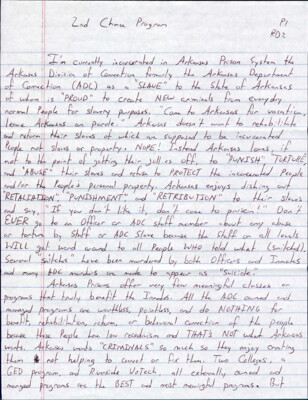 2nd Chance Program
P1
PD2
I'm currently incarcerated in Arkansas Prison System the
Arkansas Division of Correction formerly the Arkansas Department
of Correction (ADC) as a "SLAVE" to the State of Arkansas
of whom is "PROUD" to create NEW criminals from everyday
normal People for slavery purposes. "Come to Arkansas for vacation,
leave Arkansas on parole". Arkansas doesn't want to rehabilitate
and return their slaves of which are supposed to be incarcerated
People not slaves or property. NOPE! Instead Arkansas loves, if
not to the point of getting their jollies off, to "PUNISH", "TORTURE",
and "ABUSE" their slaves and refuse to PROTECT the incarcerated People
and/or the people's personal property. Arkansas enjoys dishing out
"RETALIATION", "PUNISHMENT", and "RETRIBUTION" to their slaves
and say, "If you don't like it, don't come to prison"! Don't
EVER talk to an Officer or ADC staff member about any abuse
or torture by Staff or ADC Slave because the Staff on all levels
WILL get word around to all People WHO told what (snitched).
Several "snitches" have been murdered by both Officers and Inmates
and many ADC murders are made to appear as "suicide."
Arkansas Prisons offer very few meaningful classes or
programs that truly benefit the Inmates. All the ADC owned and
managed programs are worthless, pointless, and do NOTHING for
benefit, rehabilitation, reform, or behavioral correction of the people
because these People have low recidivism and THAT'S NOT what Arkansas
wants. Arkansas wants "CRIMINALS" so much as they enjoy creating
them not helping to correct or fix them. Two Colleges,
GED program, and Riverside VoTech, all externally owned and
managed programs are the BEST and most meaningful programs. But